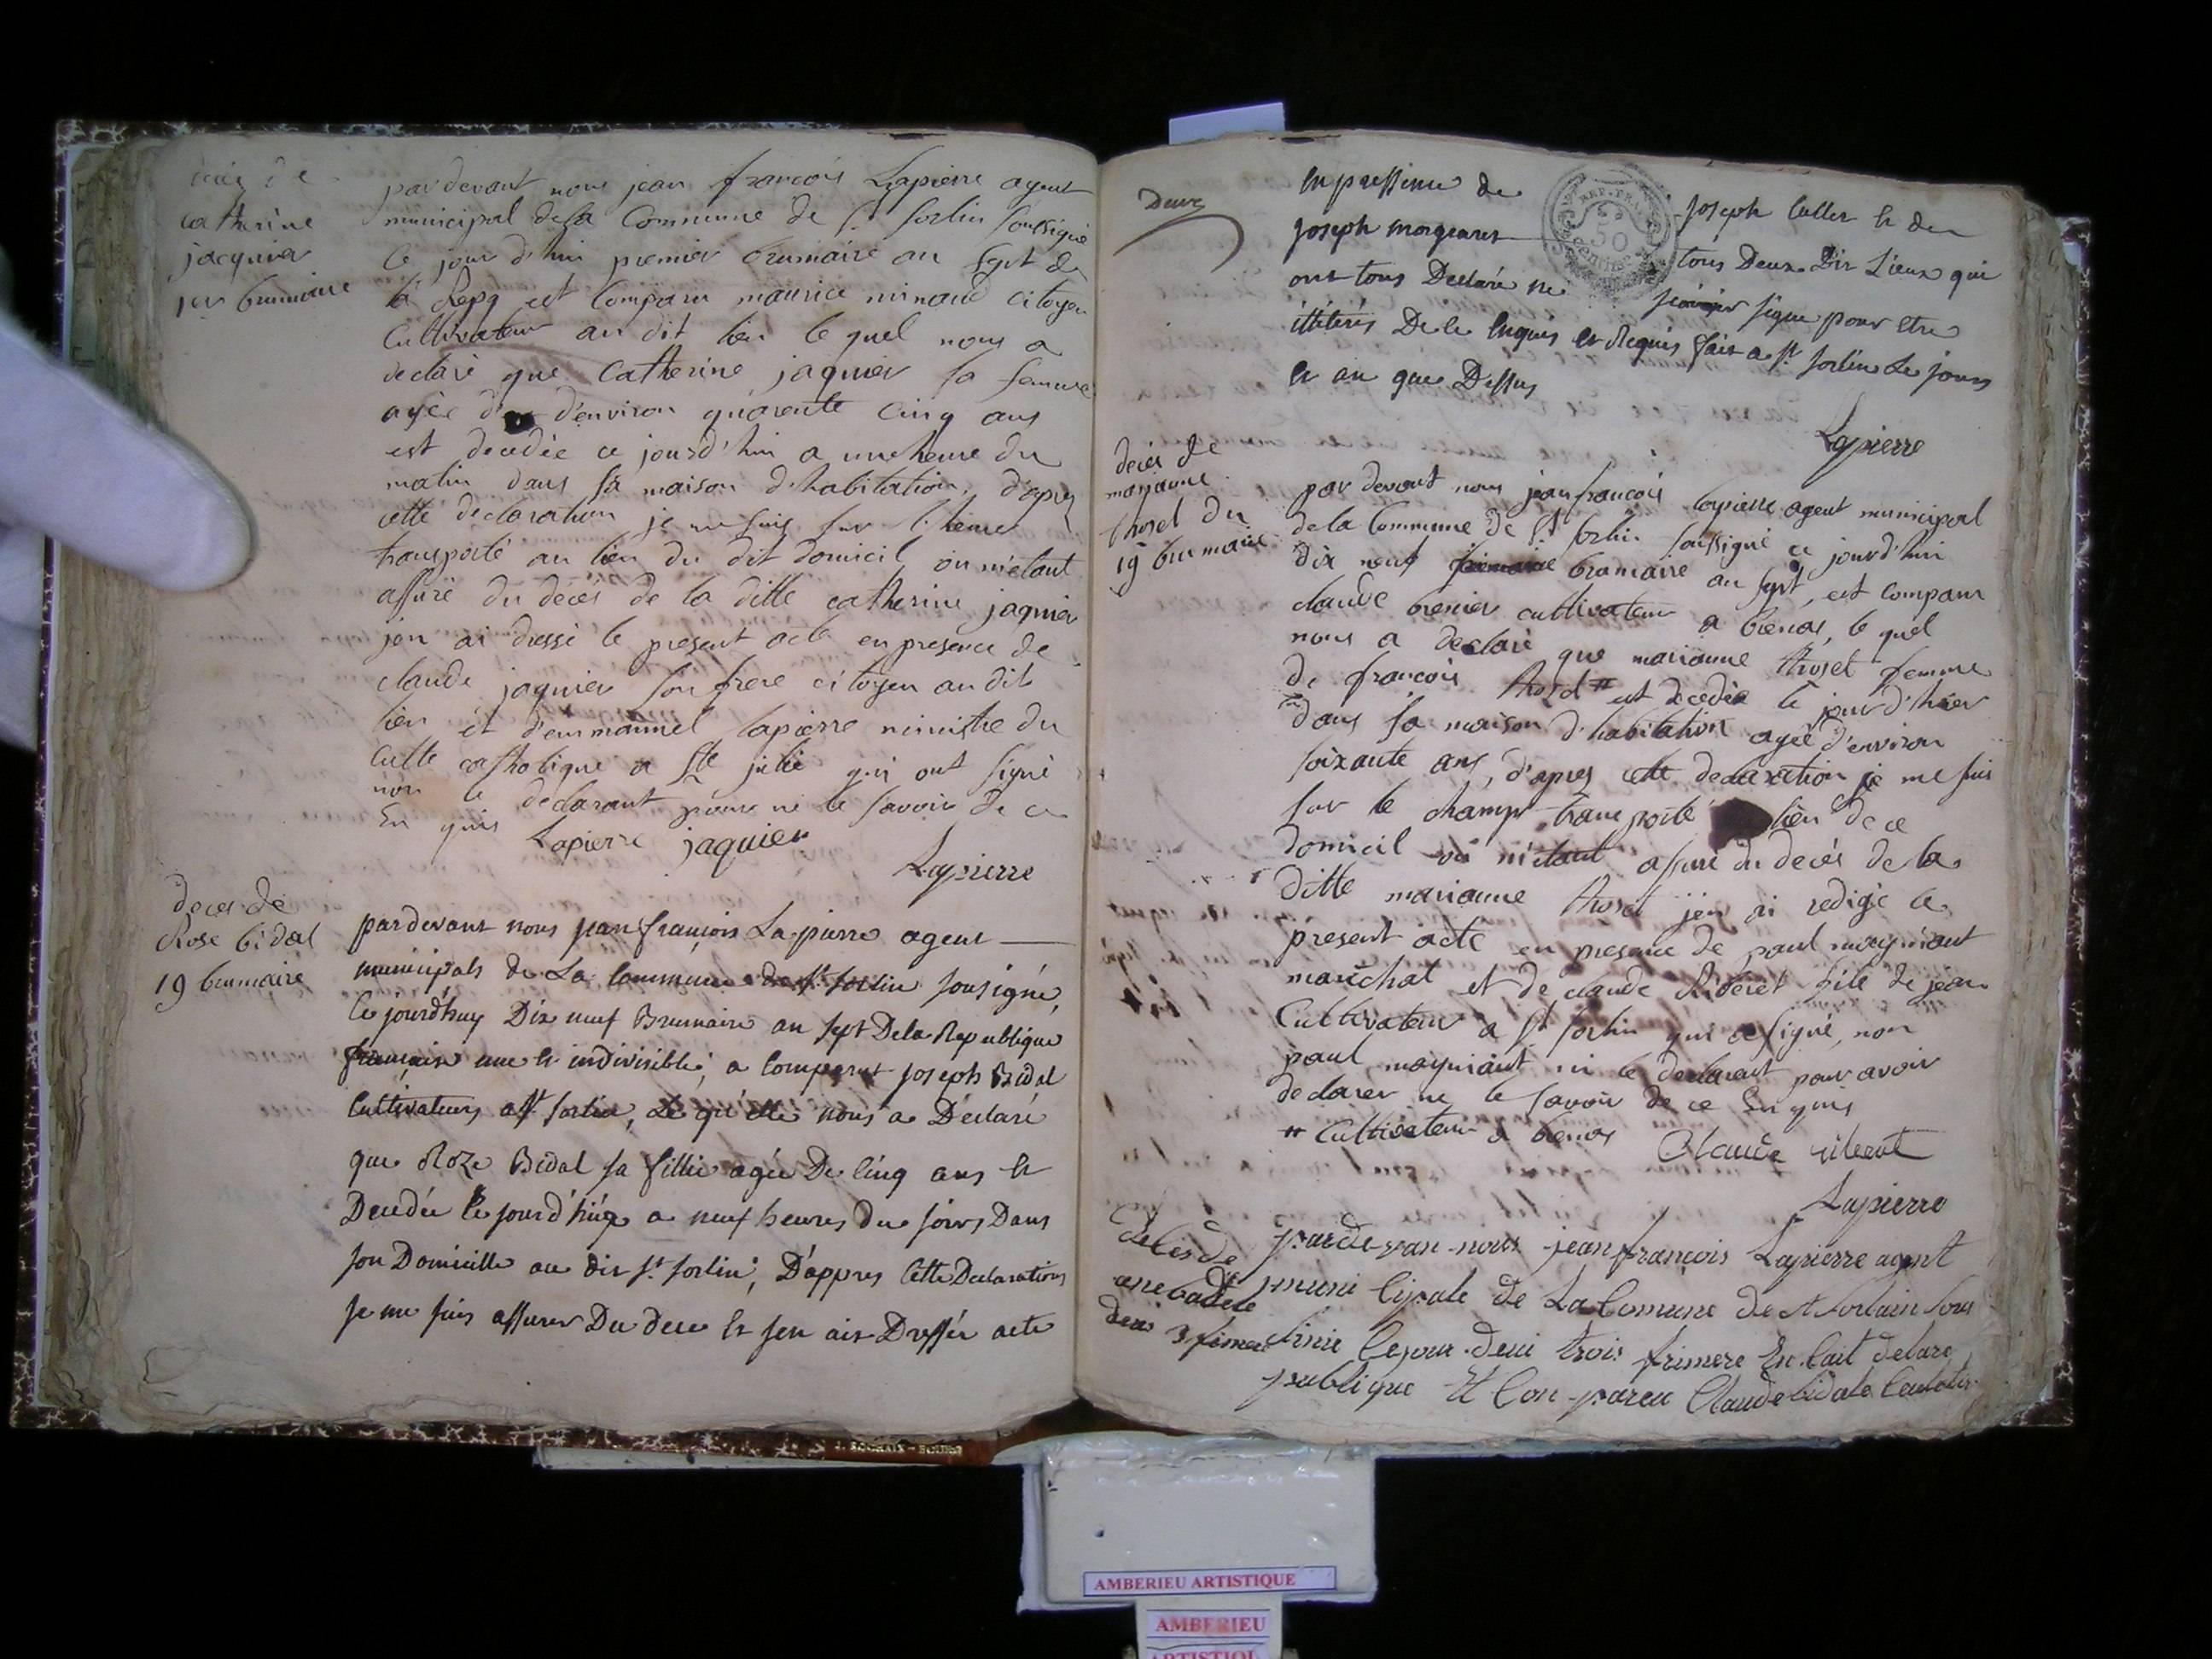 decès de
catherine
jacquier
1er brumaire
par devant nous jean françois Lapierre agent
municipal de la Commune de St Sorlin soussigné
ce jour d'hui premier brumaire an sept de
la Repq est comparu maurice minaud citoyen
Cultivateur au dit lieu le quel nous a
declaré que Catherine jaquier sa femme
agée d'environ quarente cinq ans
est decedée ce jourd'hui a une heure du
matin dans sa maison d'habitation, d'apres
cette declaration je me suis sur l'heure
transporté au lieu du dit domicil ou m'etant
assuré du decès de la ditte catherine jaquier
jen ai dressé le present acte en presence de
claude jaquier son frere citoyen au dit
lieu et d'emmanuel lapierre ministre du
culte catholique a Ste julie qui ont signé
non le declarant pour ne le savoir de ce
Enquis Lapierre jaquier
Lapierre
deces de
Rose bidal
19 brumaire
pardevant nous jean françois La pierre agent
municipals de La Commune de St Sorlin sousigné,
Ce jourd'huy Dix neuf Brumaire an sept De la Republique
française une et indivisible, a comparut joseph Bidal
Cultivateurs a St Sorlin, Le qu'elle nous a Déclaré
que Roze Bidal sa fillie agée De Cinq ans Et
Decedée le jourd'hier a neuf heures du soirs Dans
son Domicille au dit St Sorlin, D'appres Cette Declarations
Je me suis assurer Du dece Et Jen ait Dressér acte
Deux
En pressence de Joseph Cullet Et de
Joseph morgearet tous Deux Dit Lieux qui
ont tous Declaré ne scavoir signe pour etre
illiterés De Ce Enquis et Requis fait a St Sorlin Le jours
Et an que Dessus
Lapierre
decès de
marianne
throset du
19 brumaire
par devant nous jean françois lapierre agent municipal
de la Commune de St Sorlin soussigné ce jourd'hui
dix neuf brumaire an sept, est comparu
claude brenier cultivateur a bienas, le quel
nous a declaré que marianne throset femme
de françois throset # est decedée le jour d'hier
dans sa maison d'habitation agée d'environ
soixante ans, d'apres cette declaration je me suis
sur le champ transporté lieu de ce
domicil ou m'etant assuré du decés de la
ditte marianne throset j'en ai redigé le
present acte en presence de paul moyniant
marechal et de claude Riberet fils de jean
Cultivateur a St Sorlin qui a signé, non
paul moyniant ni le declarant pour avoir
declarer ne le savoir de ce Enquis
# Cultivateur a bienas Claude
Lapierre
deces de
ane badele
deu 3 frimere
parde van nous jean françois Lapierre agent
muni Cipale de La Comune de St Sorlain sous
sinie Ce jour deui trois frimere En Cait de la re
publique Et Con pareu Claude bidale
J. ROUHAIX - RODEZ
AMBERIEU ARTISTIQUE
AMBERIEU
ARTISTIQUE
REP. FRA
50